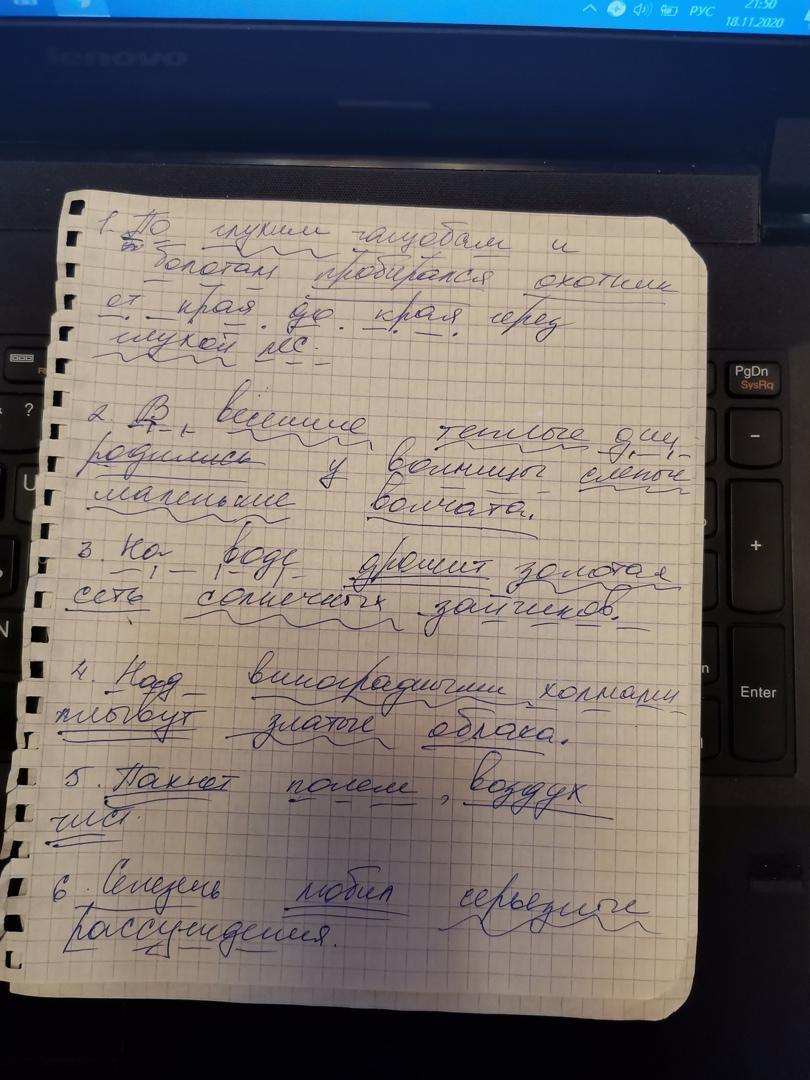 21:50
РУС
18.11.2020
lenovo
1. По глухим чащобам и
болотам пробирался охотник
от края до края через
глухой лес.
2. В весенние теплые дни
родились у волчицы слепые
маленькие волчата.
3. На воде дрожит золотая
сеть солнечных зайчиков.
4. Над виноградными холмами
плывут златые облака.
5. Пахнет полем, воздух
чист.
6. Селезень любил серьезные
рассуждения.
PgDn
SysRq
?
-
U
+
N
Enter